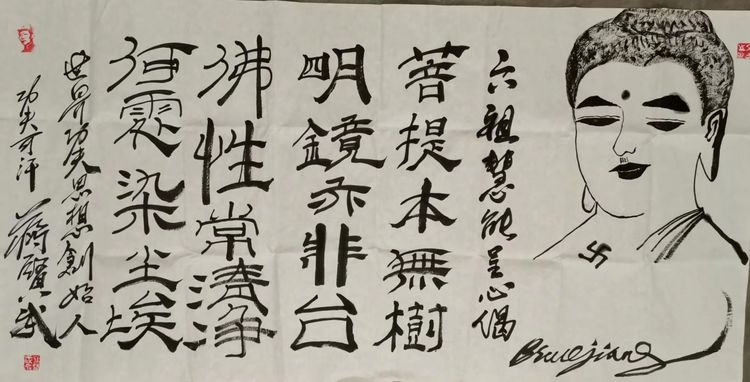 六祖慧能呈心偈
菩提本無樹
明鏡亦非台
佛性常清净
何處染尘埃
世界功夫思想創始人
功夫可汗
Brucejiang